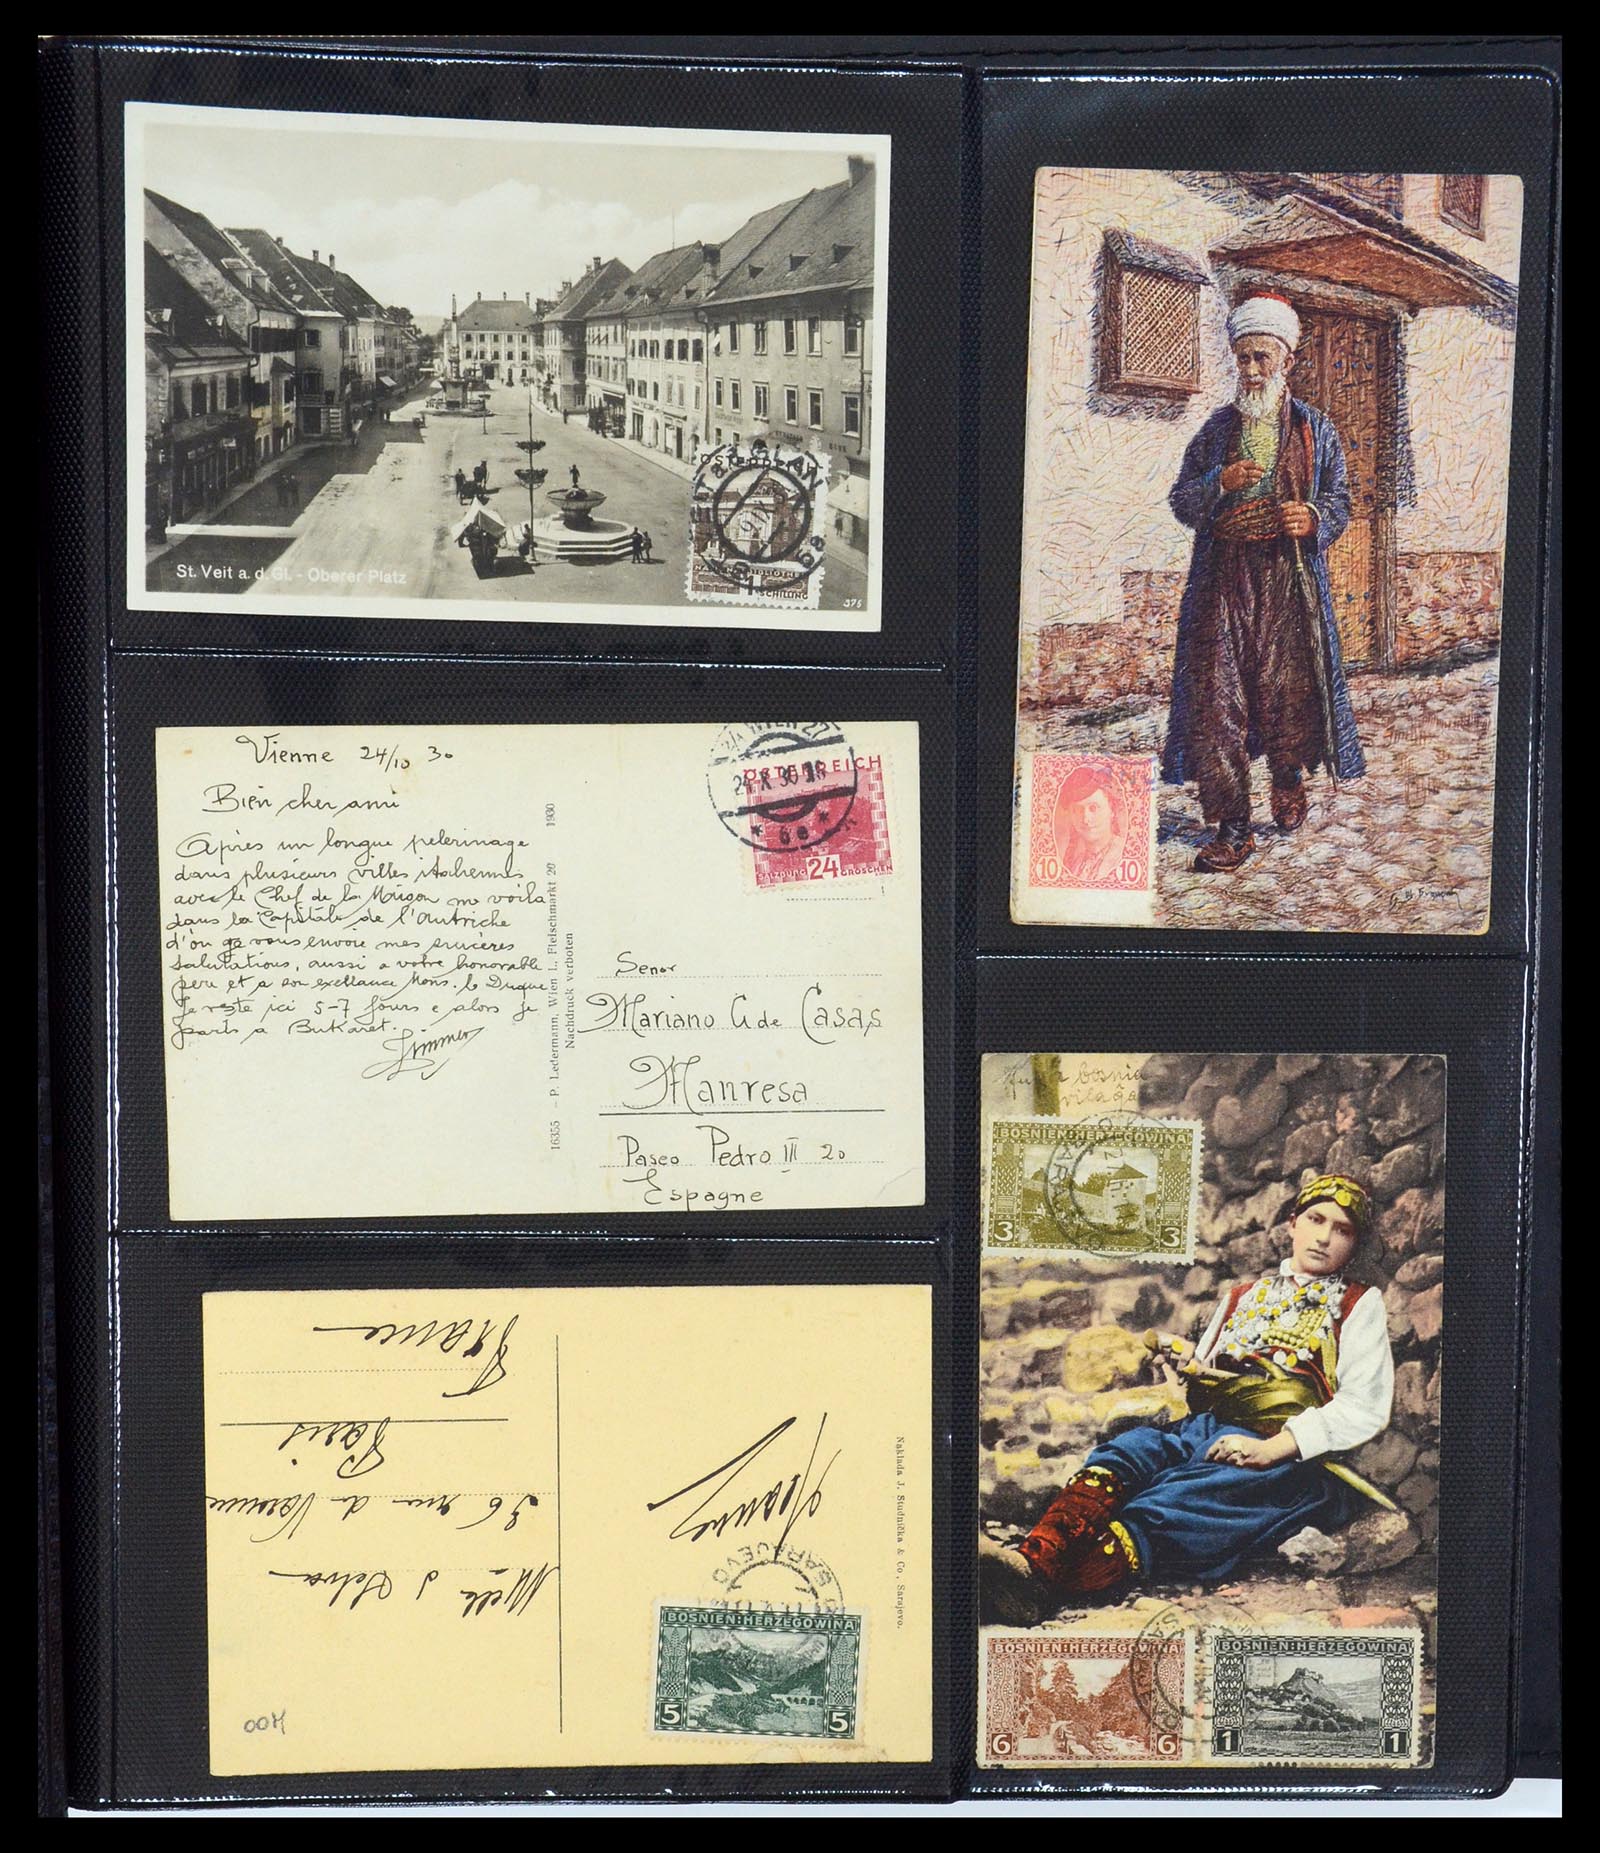 St. Veit a. d. Gl. - Oberer Platz
375
ÖSTERREICH
NATIONALBIBLIOTHEK
1
SCHILLING
10 10
Vienne 24/10 30
Bien cher ami
Après un longue pelerinage
dans plusieurs villes
avec le Chef de la voila
dans la Capitale de l'Autriche
d'ou je vous envoie mes sincères
salutations, aussi a votre honorable
pere et a son exellance Mons. le Duque
Je reste ici 5-7 jours e alors je
parts a Bukaret.
16355 - P. Ledermann, Wien I., Fleischmarkt 20 1930
Nachdruck verboten
WIEN 27
24.X.30
* 6e *
ÖSTERREICH
SALZBURG 24 GROSCHEN
Senor
Mariano G de Casas
Manresa
Paseo Pedro III 20
Espagne
bosnia
BOSNIEN-HERZEGOWINA
3 3
BOSNIEN-HERZEGOWINA
6 6
BOSNIEN-HERZEGOWINA
1 1
36 rue de
Paris
France
Naklada J. Studnička & Co, Sarajevo.
SARAJEVO
BOSNIEN-HERZEGOWINA
5 5